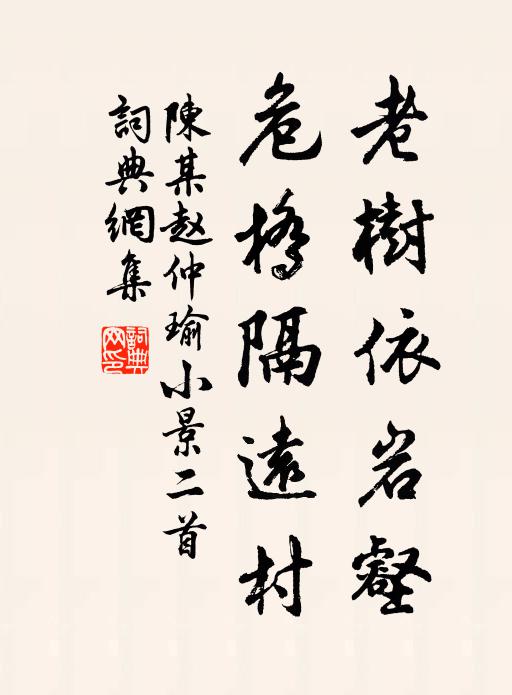 老樹依岩壑
危橋隔遠村
陳某赵仲瑜小景二首
詞典網集
詞典
网印